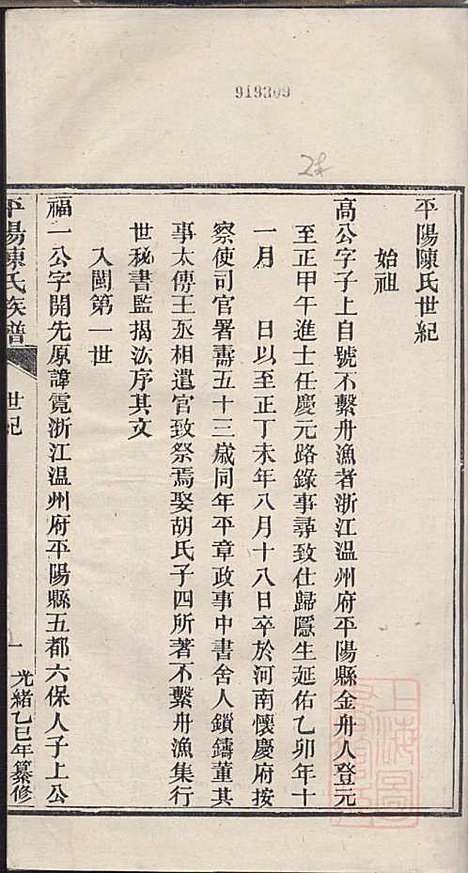 919309
平陽陳氏世紀
始祖
高公字子上自號不繫舟漁者浙江温州府平陽縣金舟人登元
至正甲午進士任慶元路錄事尋致仕歸隱生延佑乙卯年十
一月　日以至正丁未年八月十八日卒於河南懷慶府按
察使司官署壽五十三歲同年平章政事中書舍人鎖鑄董其
事太傅王丞相遣官致祭焉娶胡氏子四所著不繫舟漁集行
世秘書監揭汯序其文
入閩第一世
福一公字開先原諱霓浙江温州府平陽縣五都六保人子上公
平陽陳氏族譜
世紀
一
光緒乙巳年纂修
上海圖